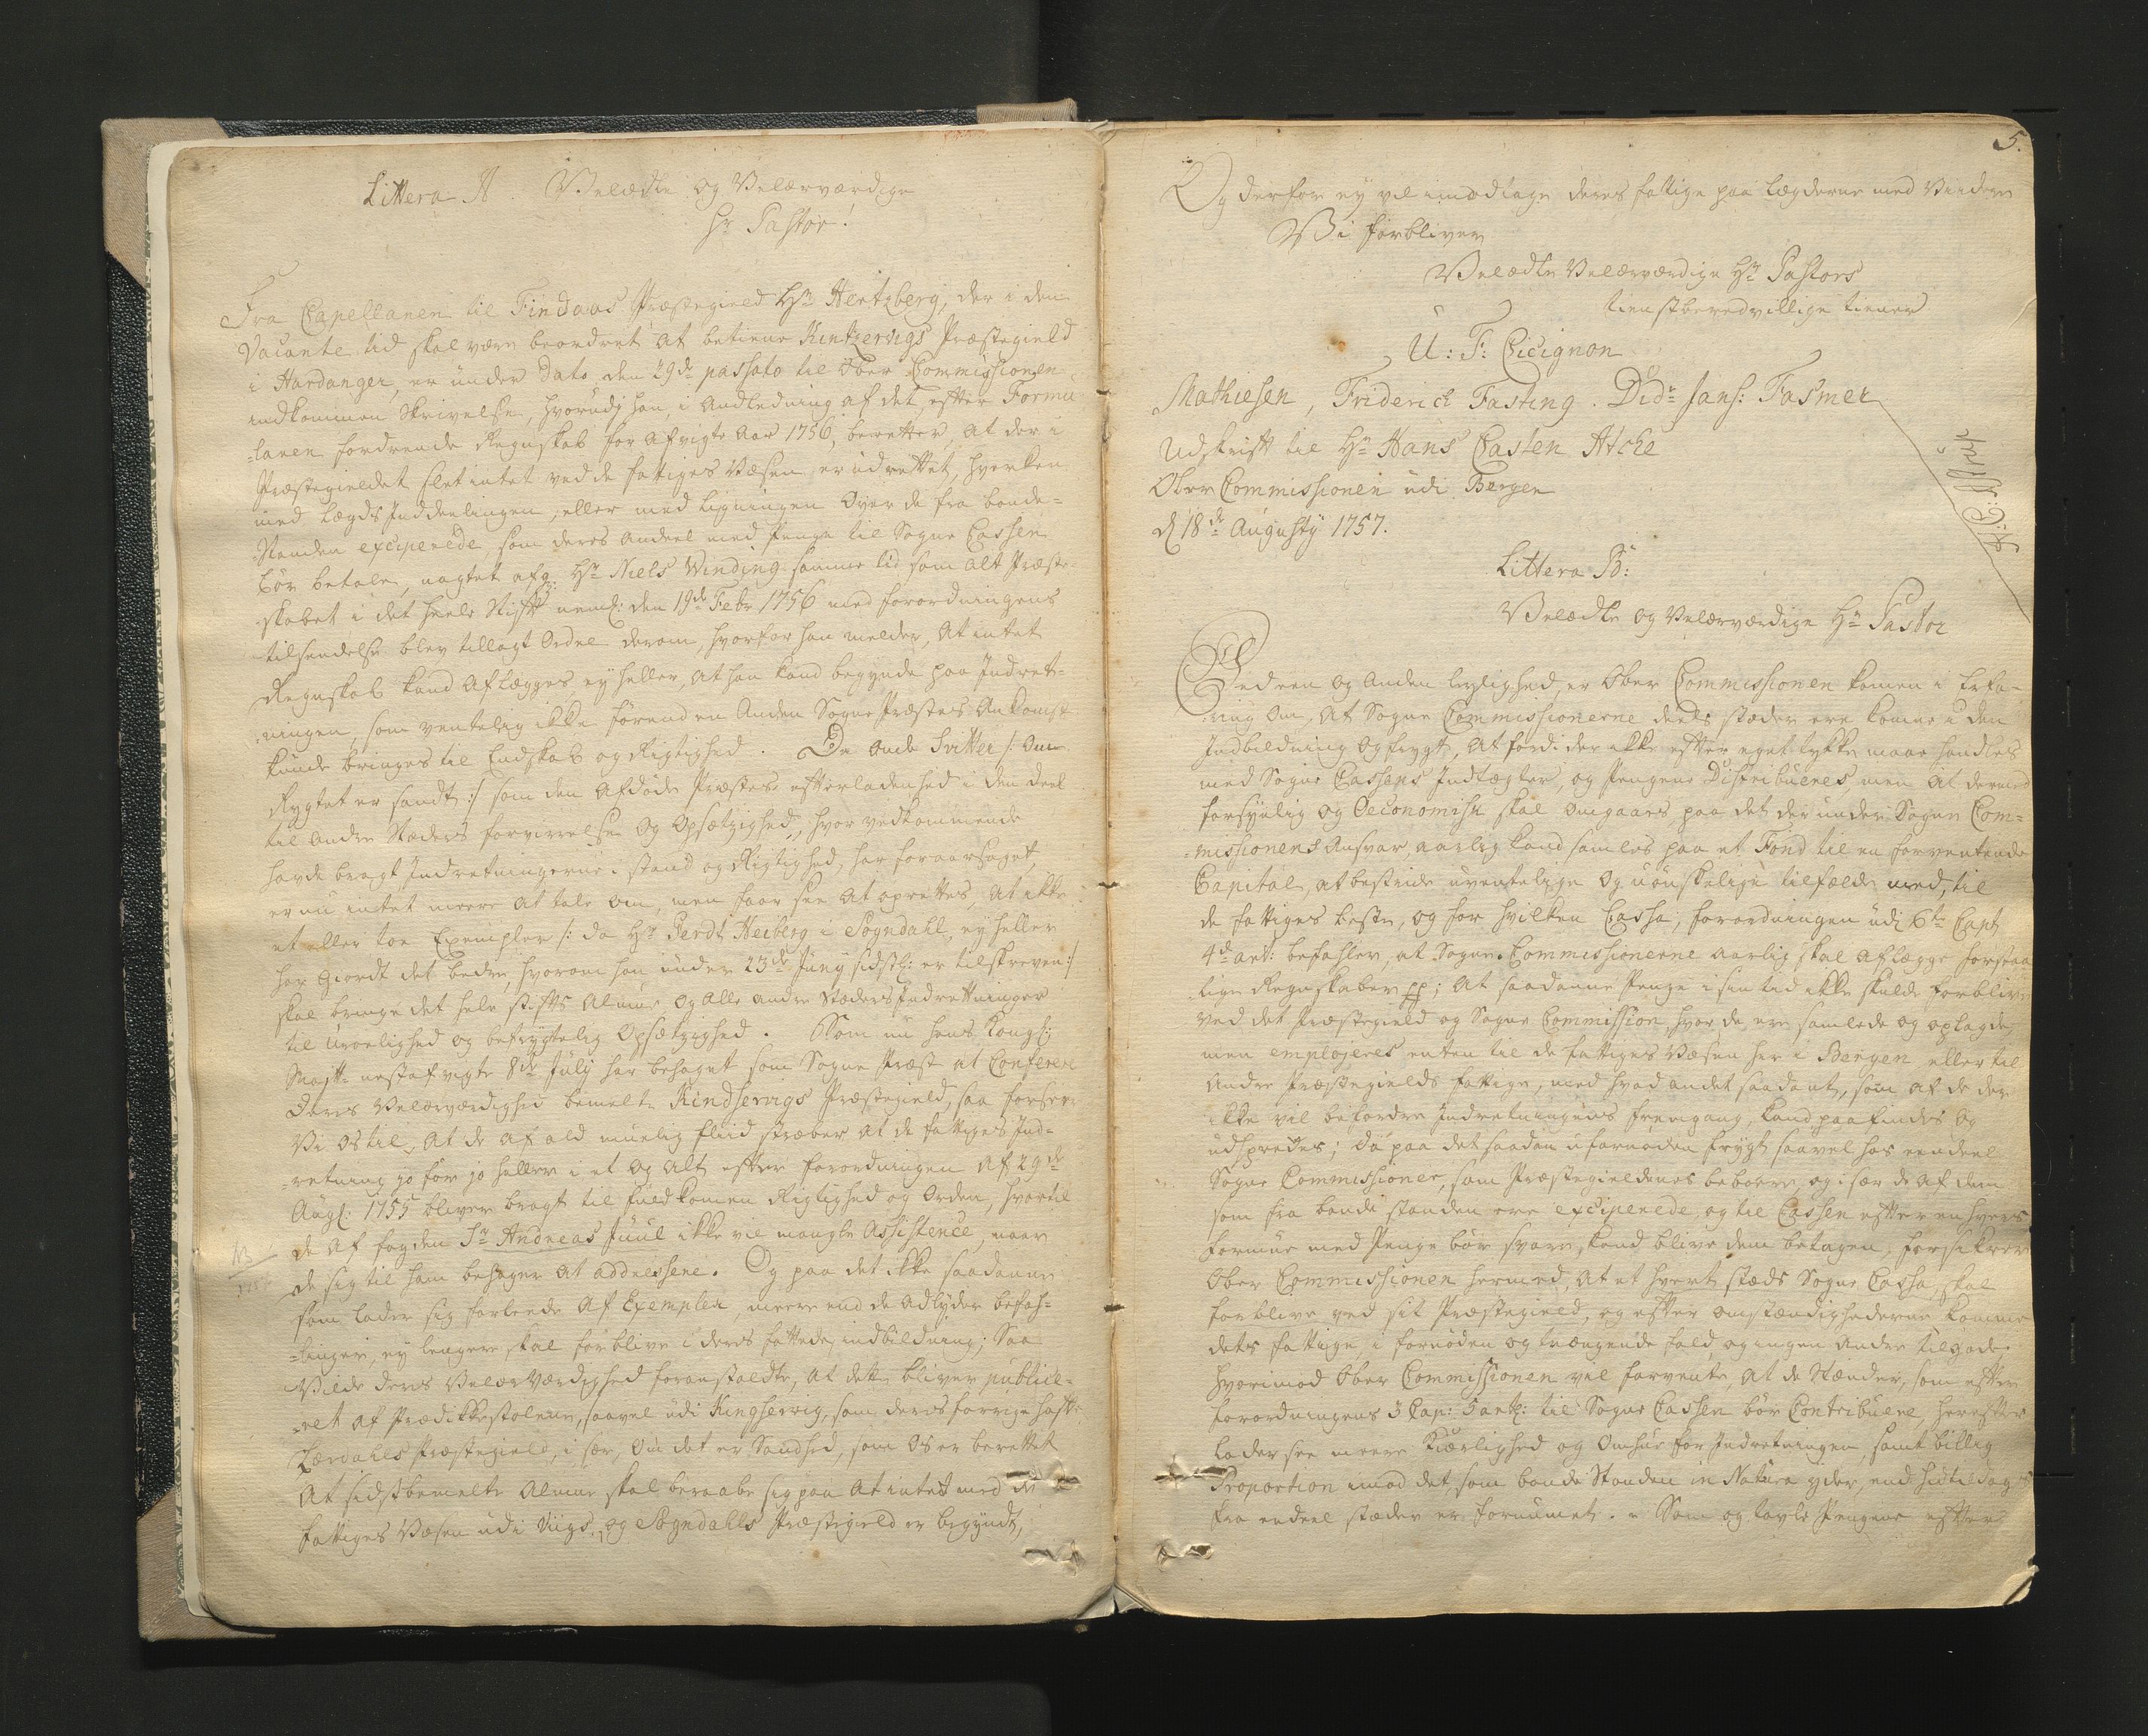 Littera A. Velædle og Velærværdige
Hr Pastor!
Fra Capellanen til Findaas Præstegield Hr Hertzberg, der i den
Vacante tid skal være beordret at betiene Kintzervigs Præstegield
i Hardanger, er under Dato den 29de passato til Ober Commissionen
indkommen Skrivelse, hvorudj han, i Andledning af det, efter Formu-
-laren fordrende Regnskab for afvigte Aar 1756, beretter, at der i
Præstegieldet slet intet ved de fattiges Væsen er udrettet, hverken
med Lægds Inddeelingen, eller med Ligningen Over de fra bonde-
-Standen exciperede, som deres andeel med Penge til Sogne Cassen
bör betale, uagtet afg: Hr Niels Winding samme tid som alt Præste-
-skabet i det heele Stift neml: den 19de Febr 1756 med forordningens
tilsendelse blev tillagt Ordre derom, hvorfor han melder, At intet
Regnskab kand aflægges, ey heller, at han kand begynde paa Indret-
-ningen, som ventelig ikke förend en Anden Sogne Præstes Ankomst
kunde bringes til Endskab og Rigtighed. De onde Svitter /: Om
Rygtet er sandt :/ som den afdöde Præstes efterladenhed i den deel
til andre Stæders forvirrelse og Opsætzighed, hvor vedkommende
havde bragt Indretningerne i stand og Rigtighed, har foraarsaget,
er nu intet meere at tale om, men faar see at oprettes, at ikke
et eller toe Exempler /: da Hr Gerdt Heiberg i Sogndahl, ey heller
har giordt det bedre, hvorom han under 23de Juny sidstl: er tilskreven :/
skal bringe det hele Stifts Almue og alle andre Stæders Indretninger
til Uroelighed og befrygtelig Opsætzighed. Som nu hans Kongl:
Maj:tt nestafvigte 8de July har behaget som Sogne Præst at Conferere
Deres Velærværdighed bemelte Kindservigs Præstegield, saa forseer
Vi Os til, at de af all muelig fliid stræber at de fattiges Ind-
-retning jo för jo hellere i et og alt efter forordningen af 29de
Augl: 1755 bliver bragt til fuldkomen Rigtighed og Orden, hvortil
de af fogden Sr Andreas Juul ikke vil mangle Assistence, naar
NB
de sig til ham behager at addressere. Og paa det ikke saadanne
som lader sig forleede af Exempler, meere end de adlyder befah-
-linger, ey lengere skal forblive i deres fattede indbildning; Saa
Vilde deres Velærværdighed foranstaldte, at dette bliver publice-
-ret af Prædikkestolene, saavel udi Kingservig, som deres forrige hafte
Lærdahls Præstegield, i sær, om det er Sandhed, som Os er berettet
At sidstbemelte Almue skal beraabe sig paa at intet med de
fattiges Væsen udi Viigs- og Sogndahls Præstegield er begyndt,
5.
Og derfor ey vil imodtage deres fattige paa Lægderne med Viidere
Vi forbliver
Velædle Velærværdige Hr Pastors
tienstberedvillige tienere
U: F: Cicignon
Mathiesen, Friderich Fasting. Didr Jans: Fasmer
Udskrift til Hr Hans Casten Atche
Ober Commissionen udi Bergen
d 18de Augusty 1757.
Littera B:
Velædle og Velærværdige Hr Pastor
Ved een og anden leylighed, er Ober Commissionen komen i Erfa-
-ring om, At Sogne Commissionerne deels stæder ere komne i den
Indbildning og frygt, At fordi der ikke efter eget tykke maae handles
med Sogne Cassens Indtægter, og Pengene Distribueres, men at dermed
forsynlig og Oeconomisk skal omgaaes paa det der under Sogne Com-
-missionens Ansvar, aarlig kand samles paa et Fond til en forventende
Capital, at bestride uventelige og uönskelige tilfælde med, til
de fattiges beste, og for hvilken Cassa, forordningen udi 6te Capt
4de art: befahler, at Sogne Commissionerne aarlig skal aflægge forstaa-
lige Regnskaber pp; At saadanne Penge i sin tid ikke skulde forblive
ved det Præstegield og Sogne Commission, hvor de ere samlede og oplagde,
men employeres enten til de fattiges Væsen her i Bergen eller til
andre Præstegields fattige, med hvad andet saadant, som af de der
ikke vil befordre Indretningens fremgang, kand paafindes og
udspredes; da paa det saadan ufornöden frygt saavel hos eendeel
Sogne Commissioner, som Præstegieldenes beboere, og i sær de af dem
som fra bonde standen ere exciperede, og til Cassen efter enhvers
formue med Penge bör svare, kand blive dem betagen, forsikrer
Ober Commissionen hermed, at et hvert stæds Sogne Cassa, skal
forblive ved sit Præstegield, og efter omstændighederne komme
dets fattige, i fornöden og trængende fald, og ingen andre tilgode.
Hvorimod Ober Commissionen vil forvente, At de Stænder, som efter
forordningens 3 Cap: 5 artl: til Sogne Cassen bör Contribuere, herefter
lader see meere Kiærlighed og Omhue for Indretningen, samt billig
Proportion imod det, som bonde Standen in Natura yder, end hidtildags
fra endeel stæder er fornumet. Som og lavle Pengene efter